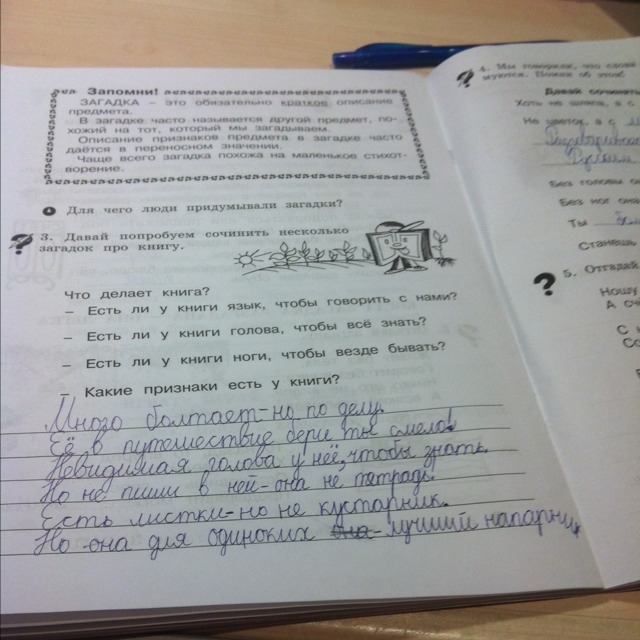 Запомни!
ЗАГАДКА – это обязательно краткое описание
предмета.
В загадке часто называется другой предмет, по-
хожий на тот, который мы загадываем.
Описание признаков предмета в загадке часто
даётся в переносном значении.
Чаще всего загадка похожа на маленькое стихот-
ворение.
Для чего люди придумывали загадки?
3. Давай попробуем сочинить несколько
загадок про книгу.
Что делает книга?
– Есть ли у книги язык, чтобы говорить с нами?
– Есть ли у книги голова, чтобы всё знать?
– Есть ли у книги ноги, чтобы везде бывать?
– Какие признаки есть у книги?
Много болтает-но по делу.
Её в путешествие бери ты смело!
Невидимая голова у неё, чтобы знать.
Но не пиши в ней-она не тетрадь.
Есть листки-но не кустарник.
Но она для одиноких она - лучший напарник
4. Мы говорили, что слова
Давай сочинить
Хоть не шляпа, а с
Не цветок, а с
Без головы
Без ног она
Ты
Станешь
5. Отгадай
Ношу
А сч
С н
Со